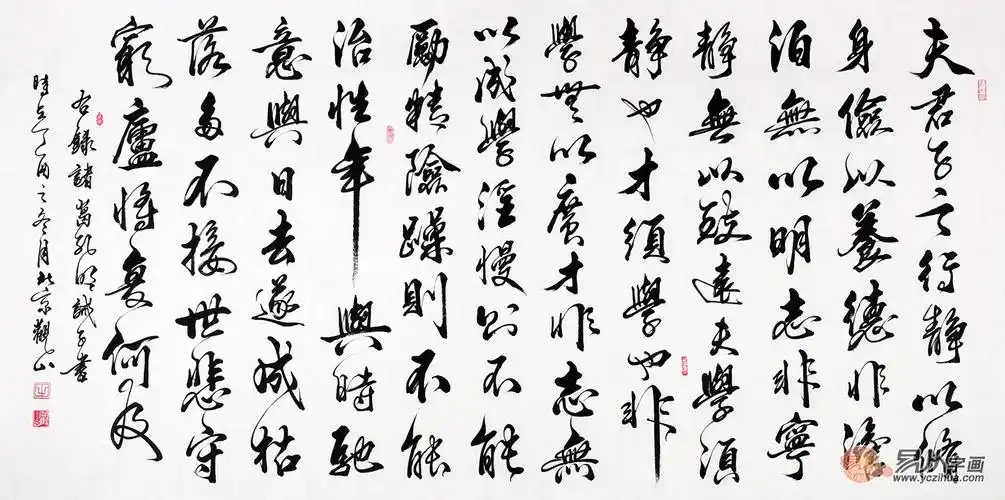 夫君子之行静以修
身儉以養德非澹
泊無以明志非寧
静無以致遠夫學須
静也才須學也非
學無以廣才非志無
以成學淫慢則不能
勵精險躁則不能
治性年與時馳
意與日去遂成枯
落多不接世悲守
窮廬將復何及
右錄諸葛孔明誡子書
時在丁酉之冬月北京觀山
易从字画
www.yczihua.com